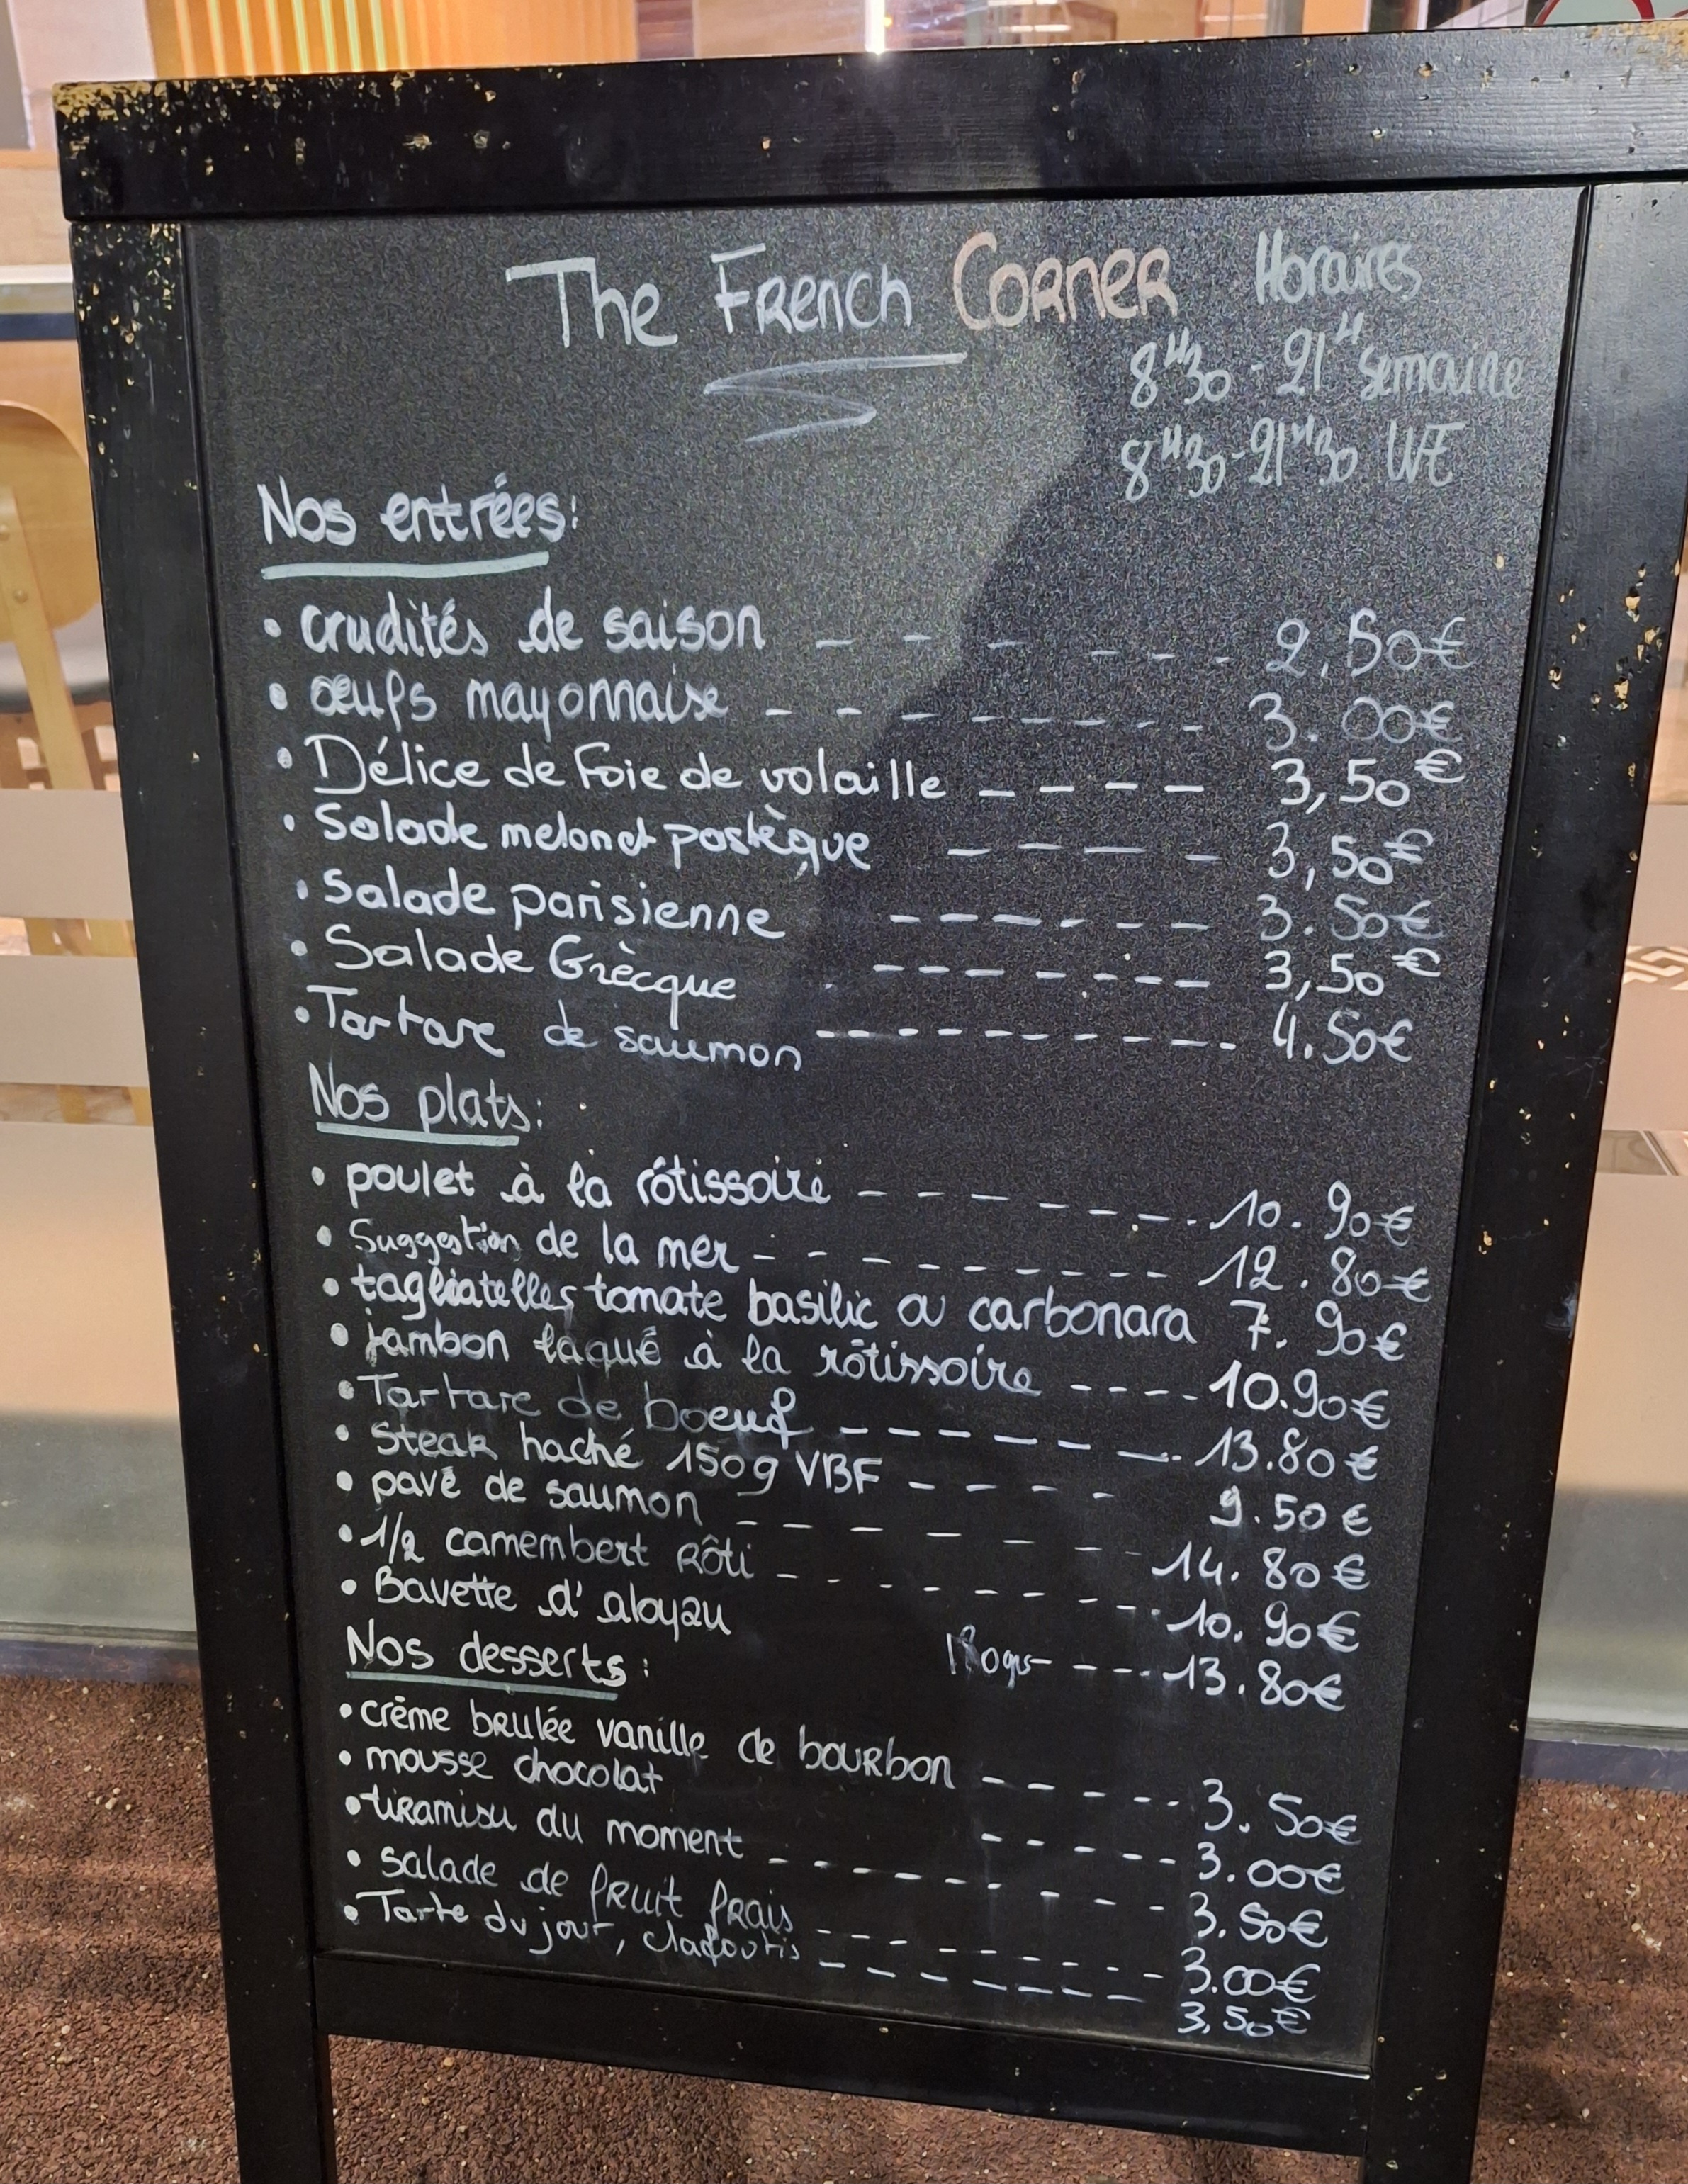 The French Corner
Horaires
8H30 - 21H semaine
8H30 - 21H30 WE
Nos entrées:
• crudités de saison _ _ _ _ _ _ 2.50€
• œufs mayonnaise _ _ _ _ _ _ _ _ 3.00€
• Délice de Foie de volaille _ _ _ _ 3,50€
• Salade melon et pastèque _ _ _ _ 3,50€
• Salade parisienne _ _ _ _ _ _ _ 3.50€
• Salade Grècque _ _ _ _ _ _ _ _ 3,50€
• Tartare de saumon _ _ _ _ _ _ _ _ _ 4.50€
Nos plats:
• poulet à la rôtissoire _ _ _ _ _ _ _ 10.90€
• Suggestion de la mer _ _ _ _ _ _ _ _ 12.80€
• tagliatelles tomate basilic ou carbonara 7.90€
• jambon laqué à la rôtissoire _ _ _ _ 10.90€
• Tartare de boeuf _ _ _ _ _ _ _ 13.80€
• Steak haché 150g VBF _ _ _ _ 9.50€
• pavé de saumon _ _ _ _ _ _ _ 14.80€
• 1/2 camembert Rôti _ _ _ _ _ _ _ _ 10.90€
• Bavette d'aloyau _ _ _ _ 13.80€
Nos desserts:
• crème brulée vanille de bourbon _ _ _ _ _ _ 3.50€
• mousse chocolat _ _ _ _ _ _ 3.00€
• tiramisu du moment _ _ _ _ _ _ _ _ _ 3.50€
• salade de fruit frais _ _ _ _ _ _ _ _ _ 3.00€
• Tarte du jour, clafoutis _ _ _ _ _ _ _ 3,50€